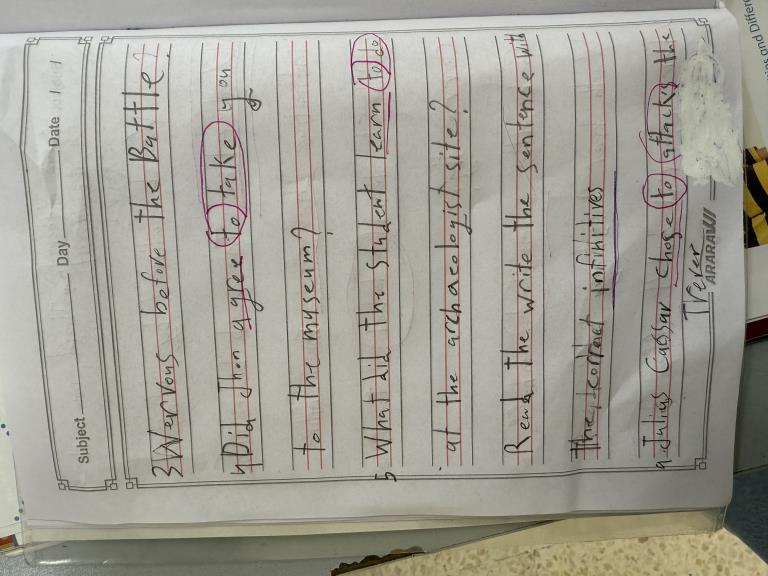 Subject Day Date
3 Nervous before the Battle.
4 Did Jhon agree to take you
to the museum?
5 What did the student learn to do
at the archaeologist site?
Read the write the sentence with
the correct infinitives
a Julius Caesar chose to attacks the
Trever
ARARAWI